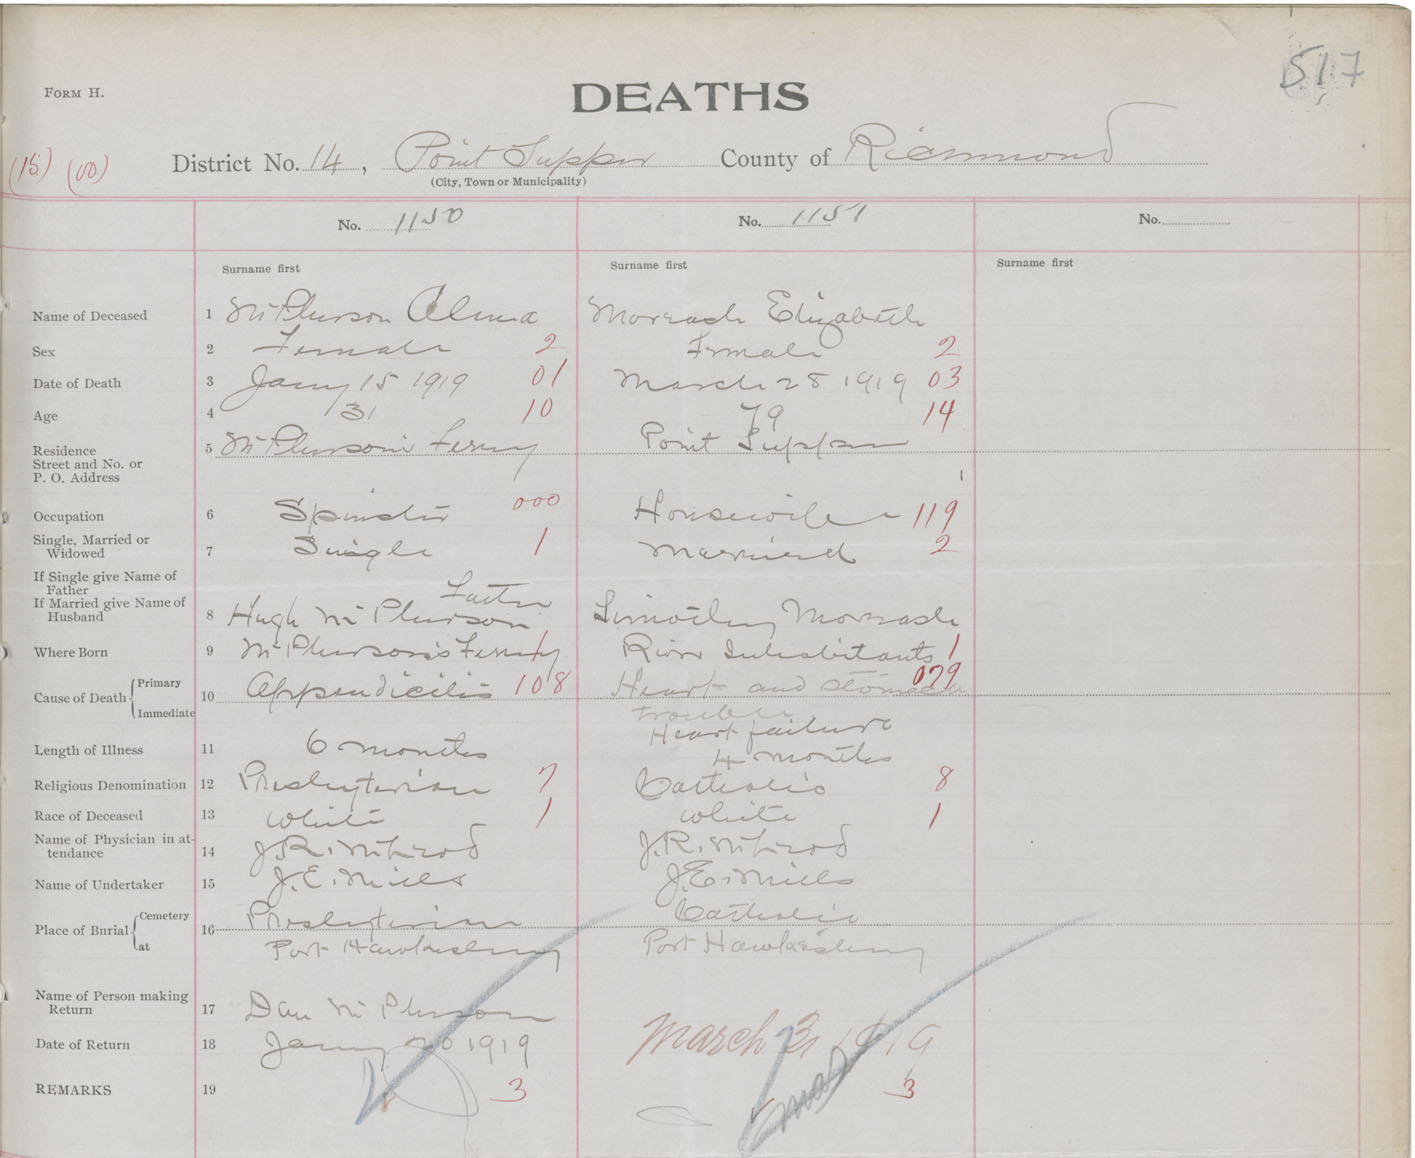 517
FORM H.
DEATHS
(15) (00) District No. 14, Point Tupper County of Richmond
(City, Town or Municipality)
No. 1150 No. 1151 No.
Surname first Surname first Surname first
Name of Deceased 1 McPherson Alma Morrash Elizabeth
Sex 2 Female 2 Female 2
Date of Death 3 Jany 15 1919 01 March 28 1919 03
Age 4 31 10 79 14
Residence 5 McPherson's Ferry Point Tupper
Street and No. or
P. O. Address 1
Occupation 6 Spinster 000 Housewife 119
Single, Married or
Widowed 7 Single 1 Married 2
If Single give Name of
Father Father
If Married give Name of
Husband 8 Hugh McPherson Timothy Morrash
Where Born 9 McPherson's Ferry 1 River Inhabitants 1
Cause of Death { Primary 10 Appendicitis 108 Heart and stomach 079
Immediate trouble
Heart failure
Length of Illness 11 6 months 4 months
Religious Denomination 12 Presbyterian 7 Catholic 8
Race of Deceased 13 white 1 white 1
Name of Physician in at-
tendance 14 J.R. J.R.
Name of Undertaker 15 J.E. Mills J.E. Mills
Place of Burial { Cemetery 16 Presbyterian Catholic
at Port Hawkesbury Port Hawkesbury
Name of Person making
Return 17 Dan McPherson
Date of Return 18 Jany 20 1919 March 31 1919
REMARKS 19 3 mar 3